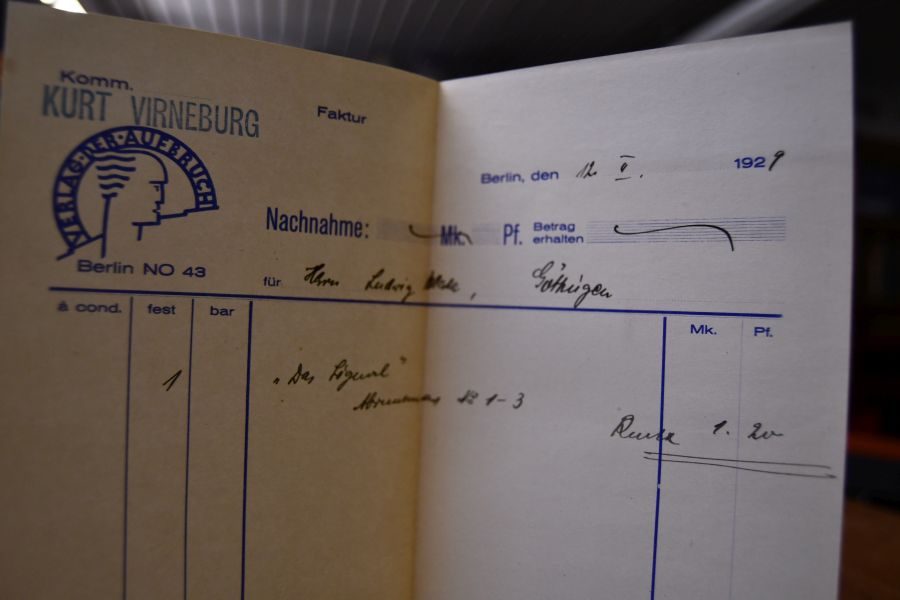 Komm.
KURT VIRNEBURG
Faktur
VERLAG·DER·AUFBRUCH
Berlin NO 43
Berlin, den 12. II. 1929
Nachnahme: Mk. Pf. Betrag
erhalten
für Herrn Ludwig Göttingen
à cond. fest bar Mk. Pf.
1 "Das Signal"
Abonnement № 1-3
1. 20